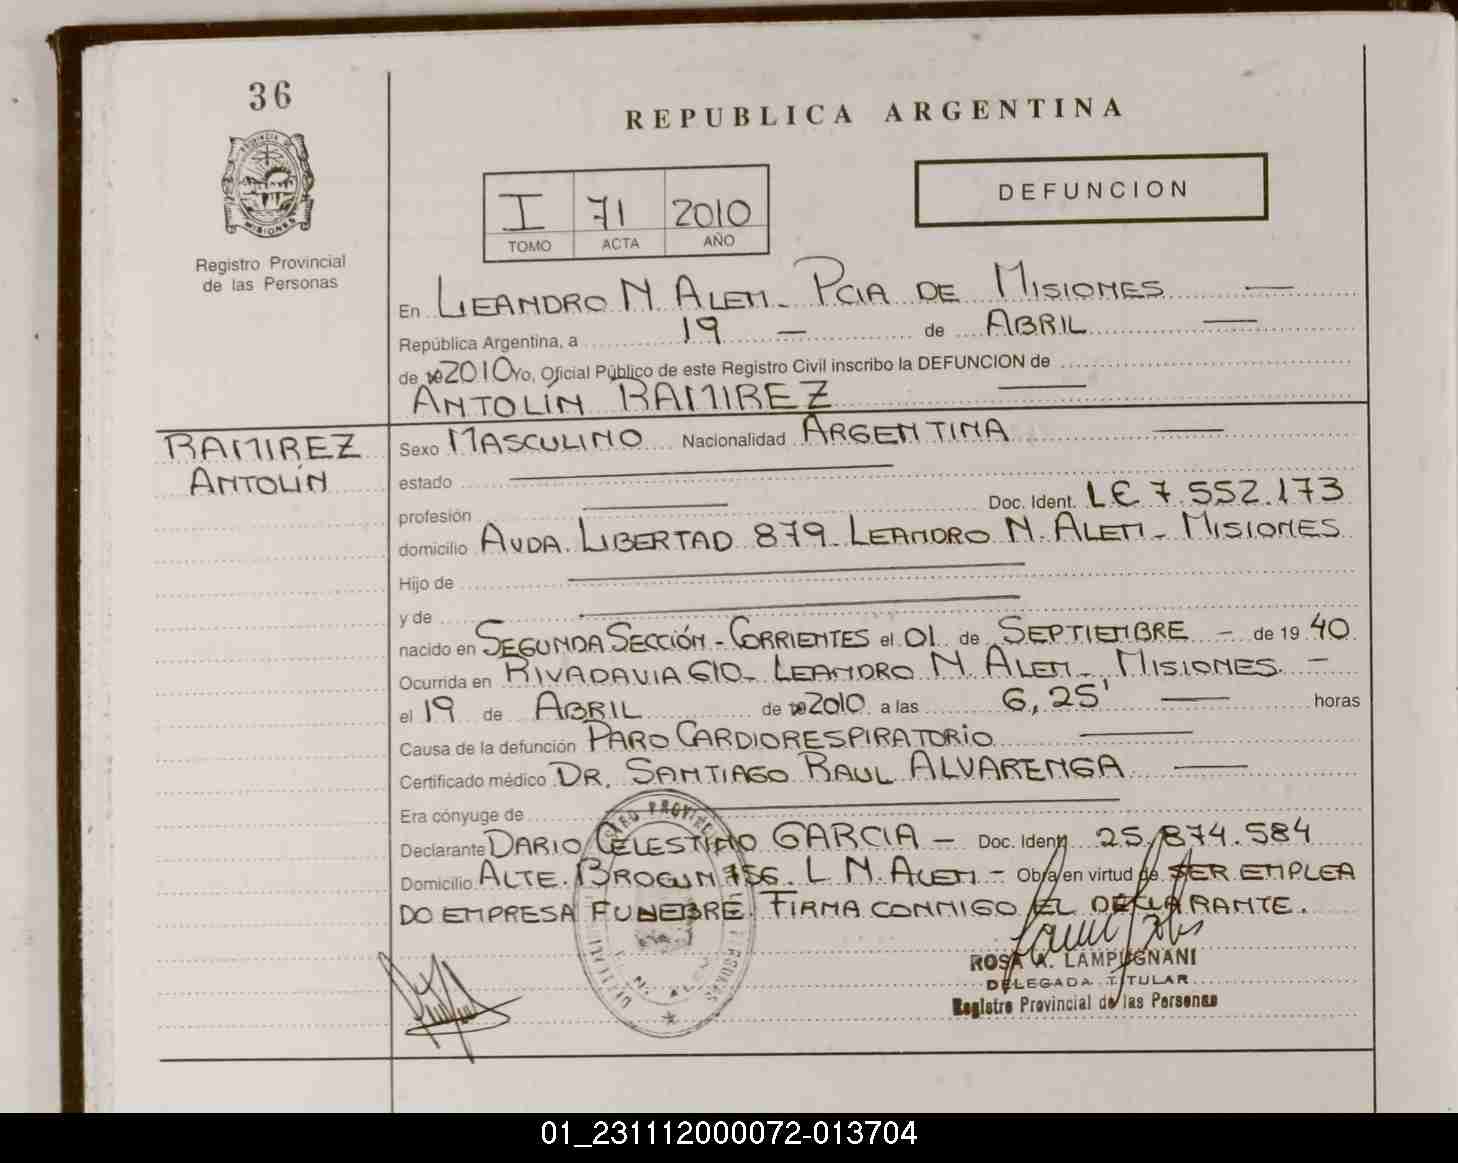 36
REPUBLICA ARGENTINA
DEFUNCION
I 71 2010
TOMO ACTA AÑO
PROVINCIA DE
MISIONES
Registro Provincial
de las Personas
En LEANDRO N. ALEM - PCIA DE MISIONES
República Argentina, a 19 - de ABRIL
de 2010 Yo, Oficial Público de este Registro Civil inscribo la DEFUNCION de
ANTOLÍN RAMIREZ
RAMIREZ
ANTOLÍN
Sexo MASCULINO Nacionalidad ARGENTINA
estado
profesión Doc. Ident. LE 7.552.173
domicilio AVDA. LIBERTAD 879 - LEANDRO N. ALEM - MISIONES
Hijo de
y de
nacido en SEGUNDA SECCIÓN - CORRIENTES el 01 de SEPTIEMBRE - de 19 40
Ocurrida en RIVADAVIA 610 - LEANDRO N. ALEM - MISIONES -
el 19 de ABRIL de 2010 a las 6,25' horas
Causa de la defunción PARO CARDIORESPIRATORIO
Certificado médico DR. SANTIAGO RAUL ALVARENGA
Era cónyuge de
Declarante DARIO CELESTINO GARCIA - Doc. Ident. 25.874.584
Domicilio ALTE. BROWN 756. L N. ALEM - Obra en virtud de SER EMPLEA
DO EMPRESA FUNEBRE. FIRMA CONMIGO EL DECLARANTE.
ROSA A. LAMPUGNANI
DELEGADA TITULAR
Registro Provincial de las Personas
01_231112000072-013704